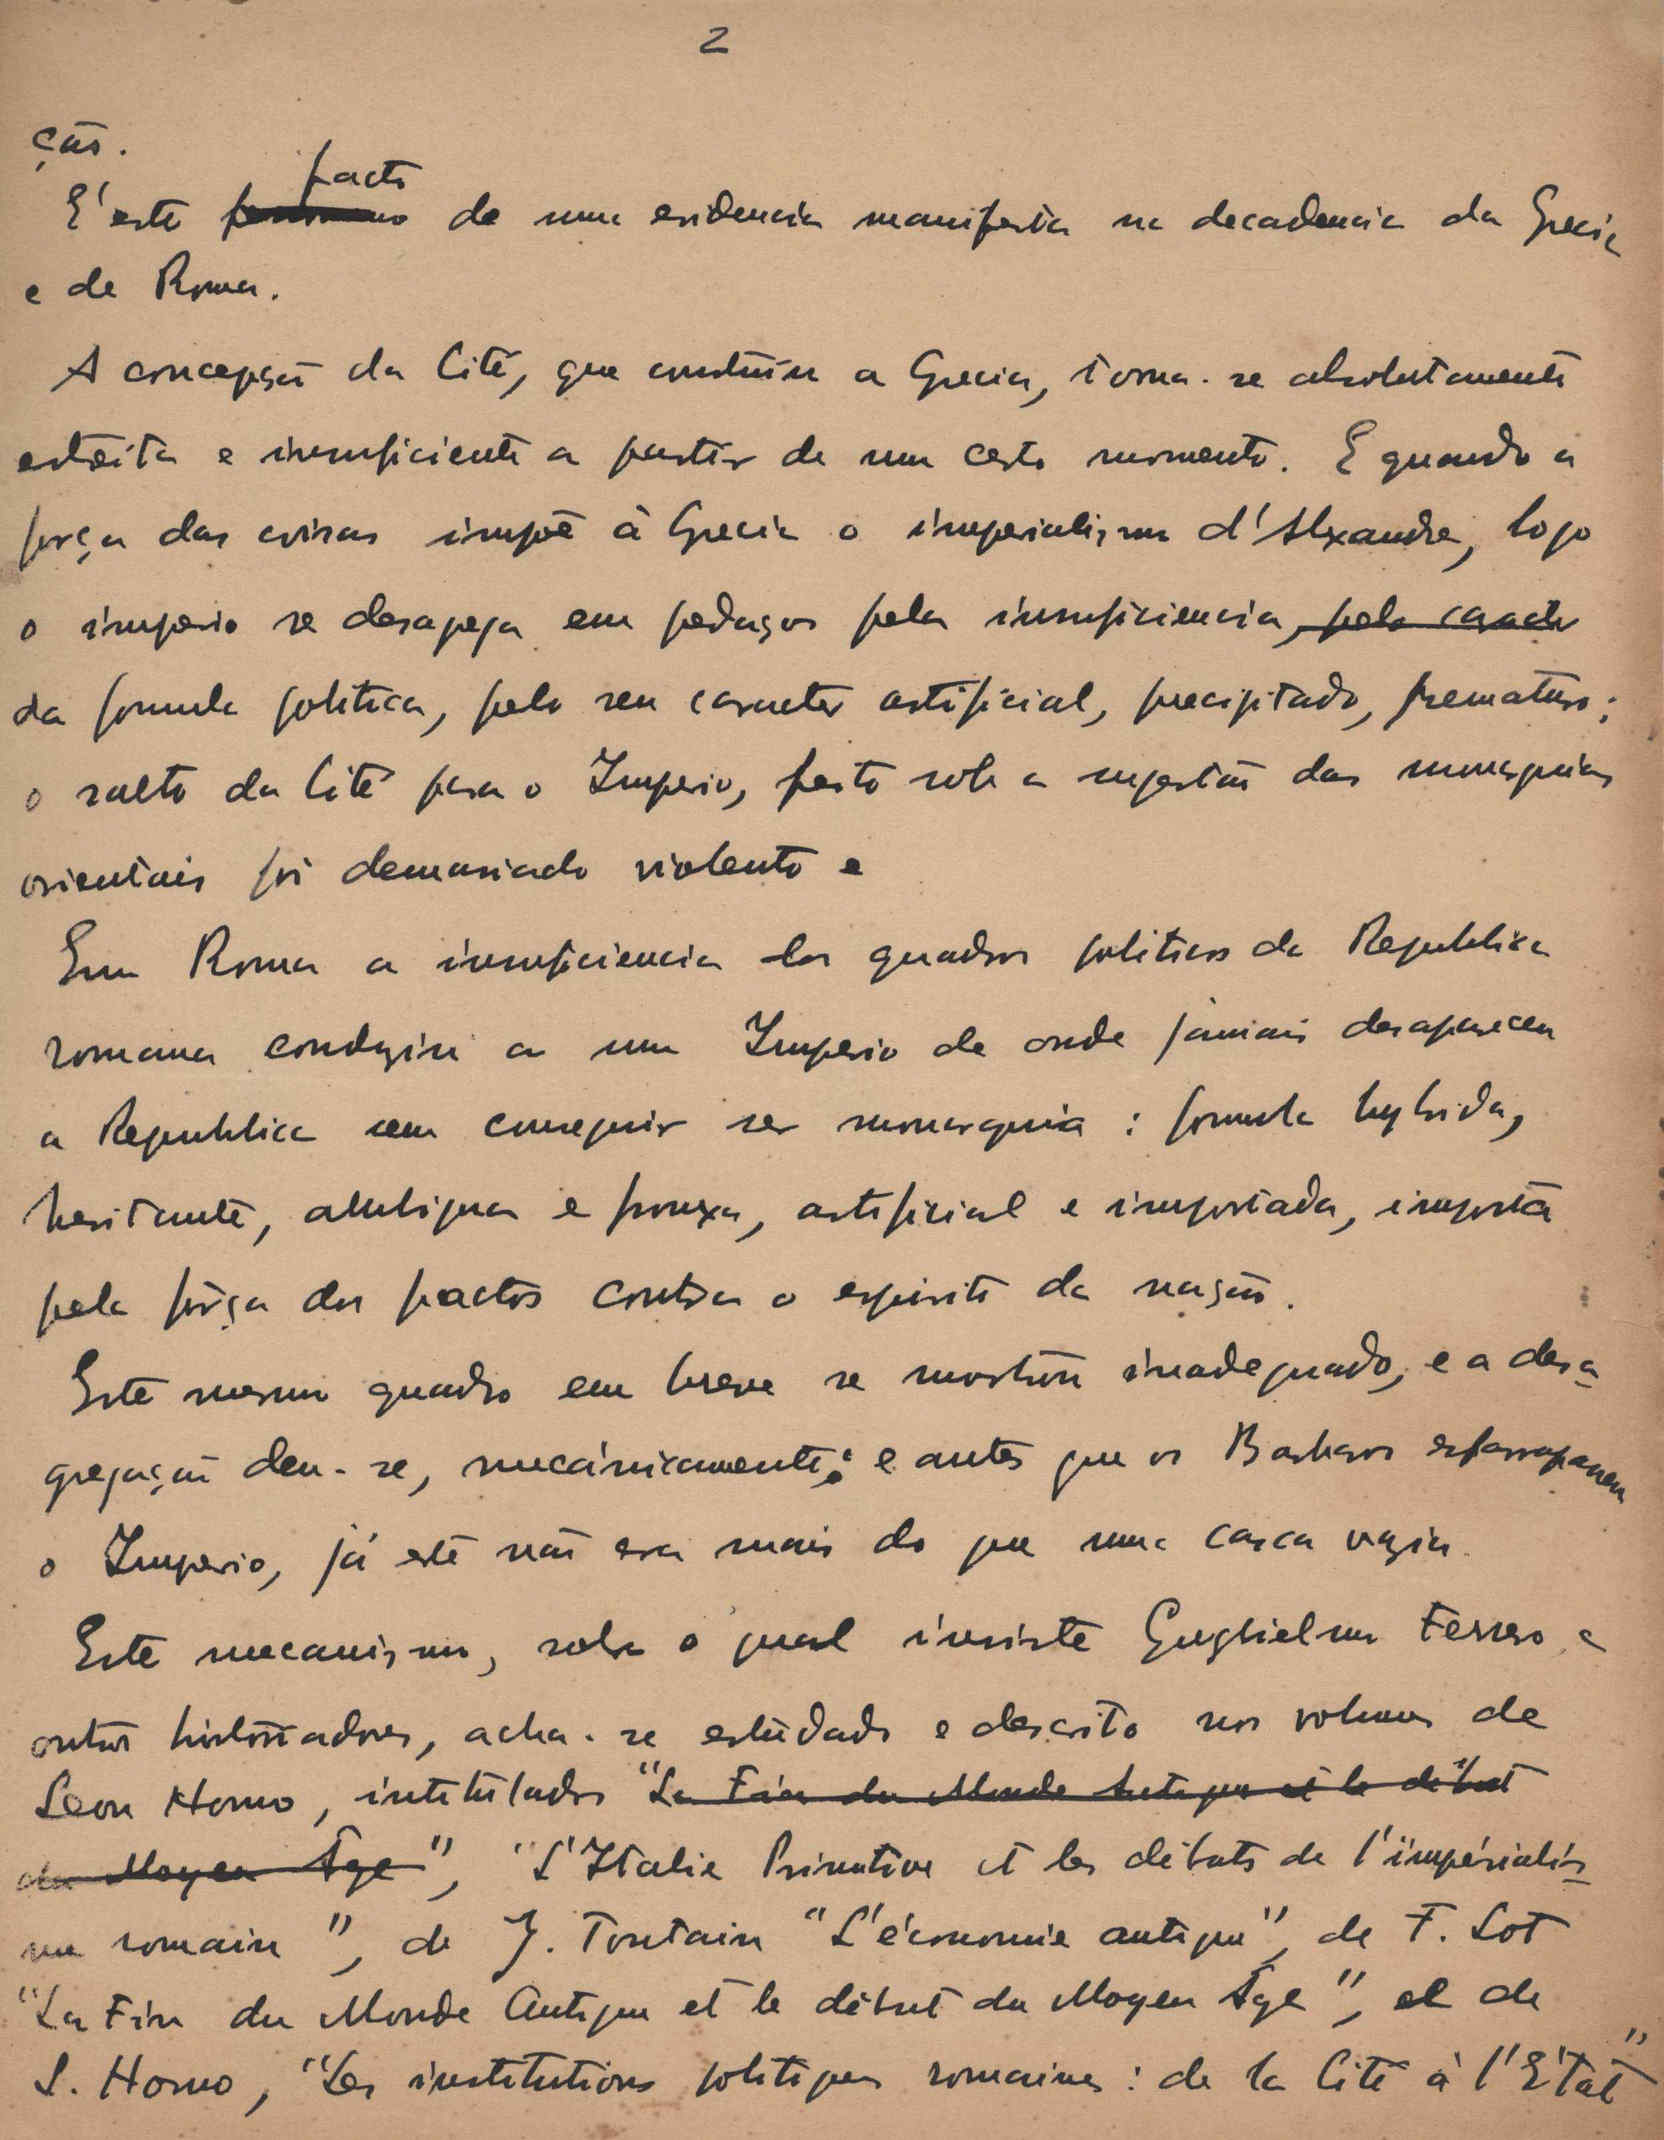 2
ção.
E' este fenomeno facto de uma evidencia manifesta na decadencia da Grecia
e de Roma.
A concepção da Cité, que construiu a Grecia, torna-se absolutamente
estreita e insuficiente a partir de um certo momento. E quando a
força das coisas impõe à Grecia o imperialismo d'Alexandre, logo
o imperio se desapega em pedaços pela insuficiencia, pelo caracter
da formula politica, pelo seu caracter artificial, precipitado, prematuro;
o salto da Cité para o Imperio, feito sob a sugestão das monarquias
orientais foi demasiado violento e
Em Roma a insuficiencia dos quadros politicos da Republica
romana conduziu a um Imperio de onde jamais desapareceu
a Republica sem conseguir ser monarquia: formula hybrida,
hesitante, ambigua e frouxa, artificial e importada, imposta
pela fôrça dos factos contra o espirito da nação.
Este mesmo quadro em breve se mostrou inadequado, e a desa-
gregação deu-se, mecánicamente; e antes que os Barbaros esfarrapassem
o Imperio, já este não era mais do que uma casca vazia.
Este mecanismo, sobre o qual insiste Guglielmo Ferrero e
outros historiadores, acha-se estudado e descrito nos volumes de
Leon Homo, intitulados "La Fin du Monde Antique et le début
du Moyen Âge", "L'Italie Primitive et les débuts de l'impérialis-
me romain", de J. Toutain "L'économie antique", de F. Lot
"La Fin du Monde Antique et le début du Moyen Âge", et de
L. Homo, "Les institutions politiques romaines: de la Cité à l'Etat"